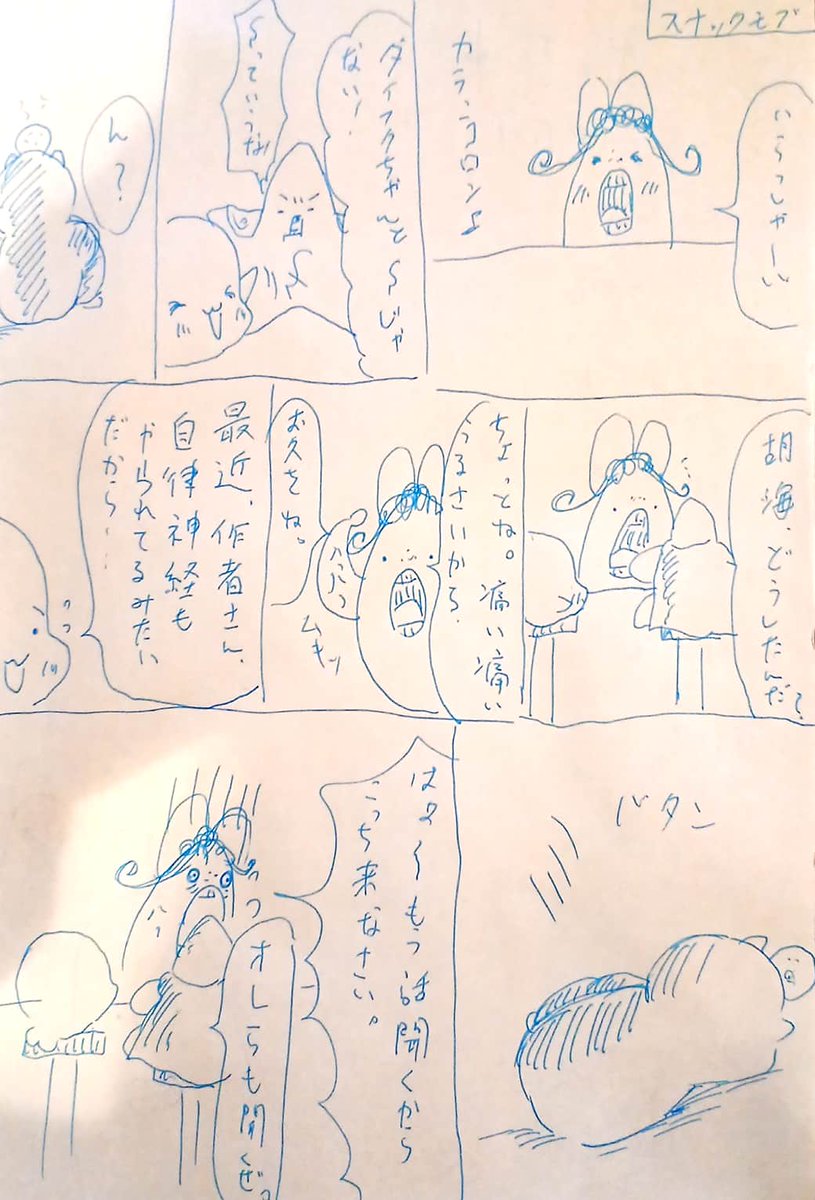 スナックモブ
いらっしゃーい
カラン
コロンよ
ダイフクちゃんと〜じゃ
ない!
〜っていうな!
ん?
胡海、どうしたんだ?
ちょっとね。痛い痛い
うるさいから、
お久をね。
ムキッ
最近、作者さん、
自律神経も
やられてるみたい
だから…
バタン
もう話聞くから
こっち来なさい。
オレらも聞くぜっ